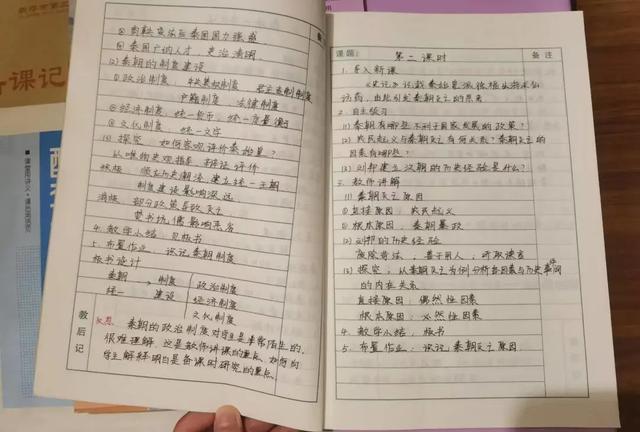 教师备课
课记
② 商鞅变法后秦国国力强盛
③ 秦国广纳人才，吏治清明
(2) 秦朝的制度建设
① 政治制度：中央集权制度 君主专制制度
户籍制度 法律制度
② 经济制度：统一货币，统一度量衡
③ 文化制度：统一文字
(3) 探究：如何客观评价秦始皇？
以唯物史观指导，辩证评价
积极：顺应历史潮流，建立统一王朝
制度建设影响深远
消极：部分政策导致灭亡
焚书坑儒影响恶名
4. 教学小结：见板书
5. 布置作业：识记秦朝制度
板书设计
秦朝 制度 政治制度
统一 建设 经济制度
文化制度
教后记
反思：秦朝的政治制度对学生是非常陌生的，
很难理解，这是教师讲课的重点，如何向
学生解释明白是备课时研究的重点。
课题：
第二课时
备注
1. 导入新课
《史记》记载秦始皇派徐福出海求仙
访药，由此引起秦朝灭亡的原来
2. 自主练习
(1) 秦朝有哪些不利于国家发展的政策？
(2) 农民起义与秦朝灭亡有何关系？秦朝灭亡的
因素有哪些？
(3) 刘邦建立汉朝的历史经验是什么？
3. 教师讲解
(1) 秦朝灭亡原因
① 直接原因：农民起义
② 根本原因：秦朝暴政
(2) 刘邦的历史经验
废除苛法，善于用人，听取谏言
(3) 探究：从秦朝灭亡为例分析各因素与历史事件间
的内在关系
直接原因：偶然性因素
根本原因：必然性因素
4. 教学小结：板书
5. 布置作业：识记秦朝灭亡原因